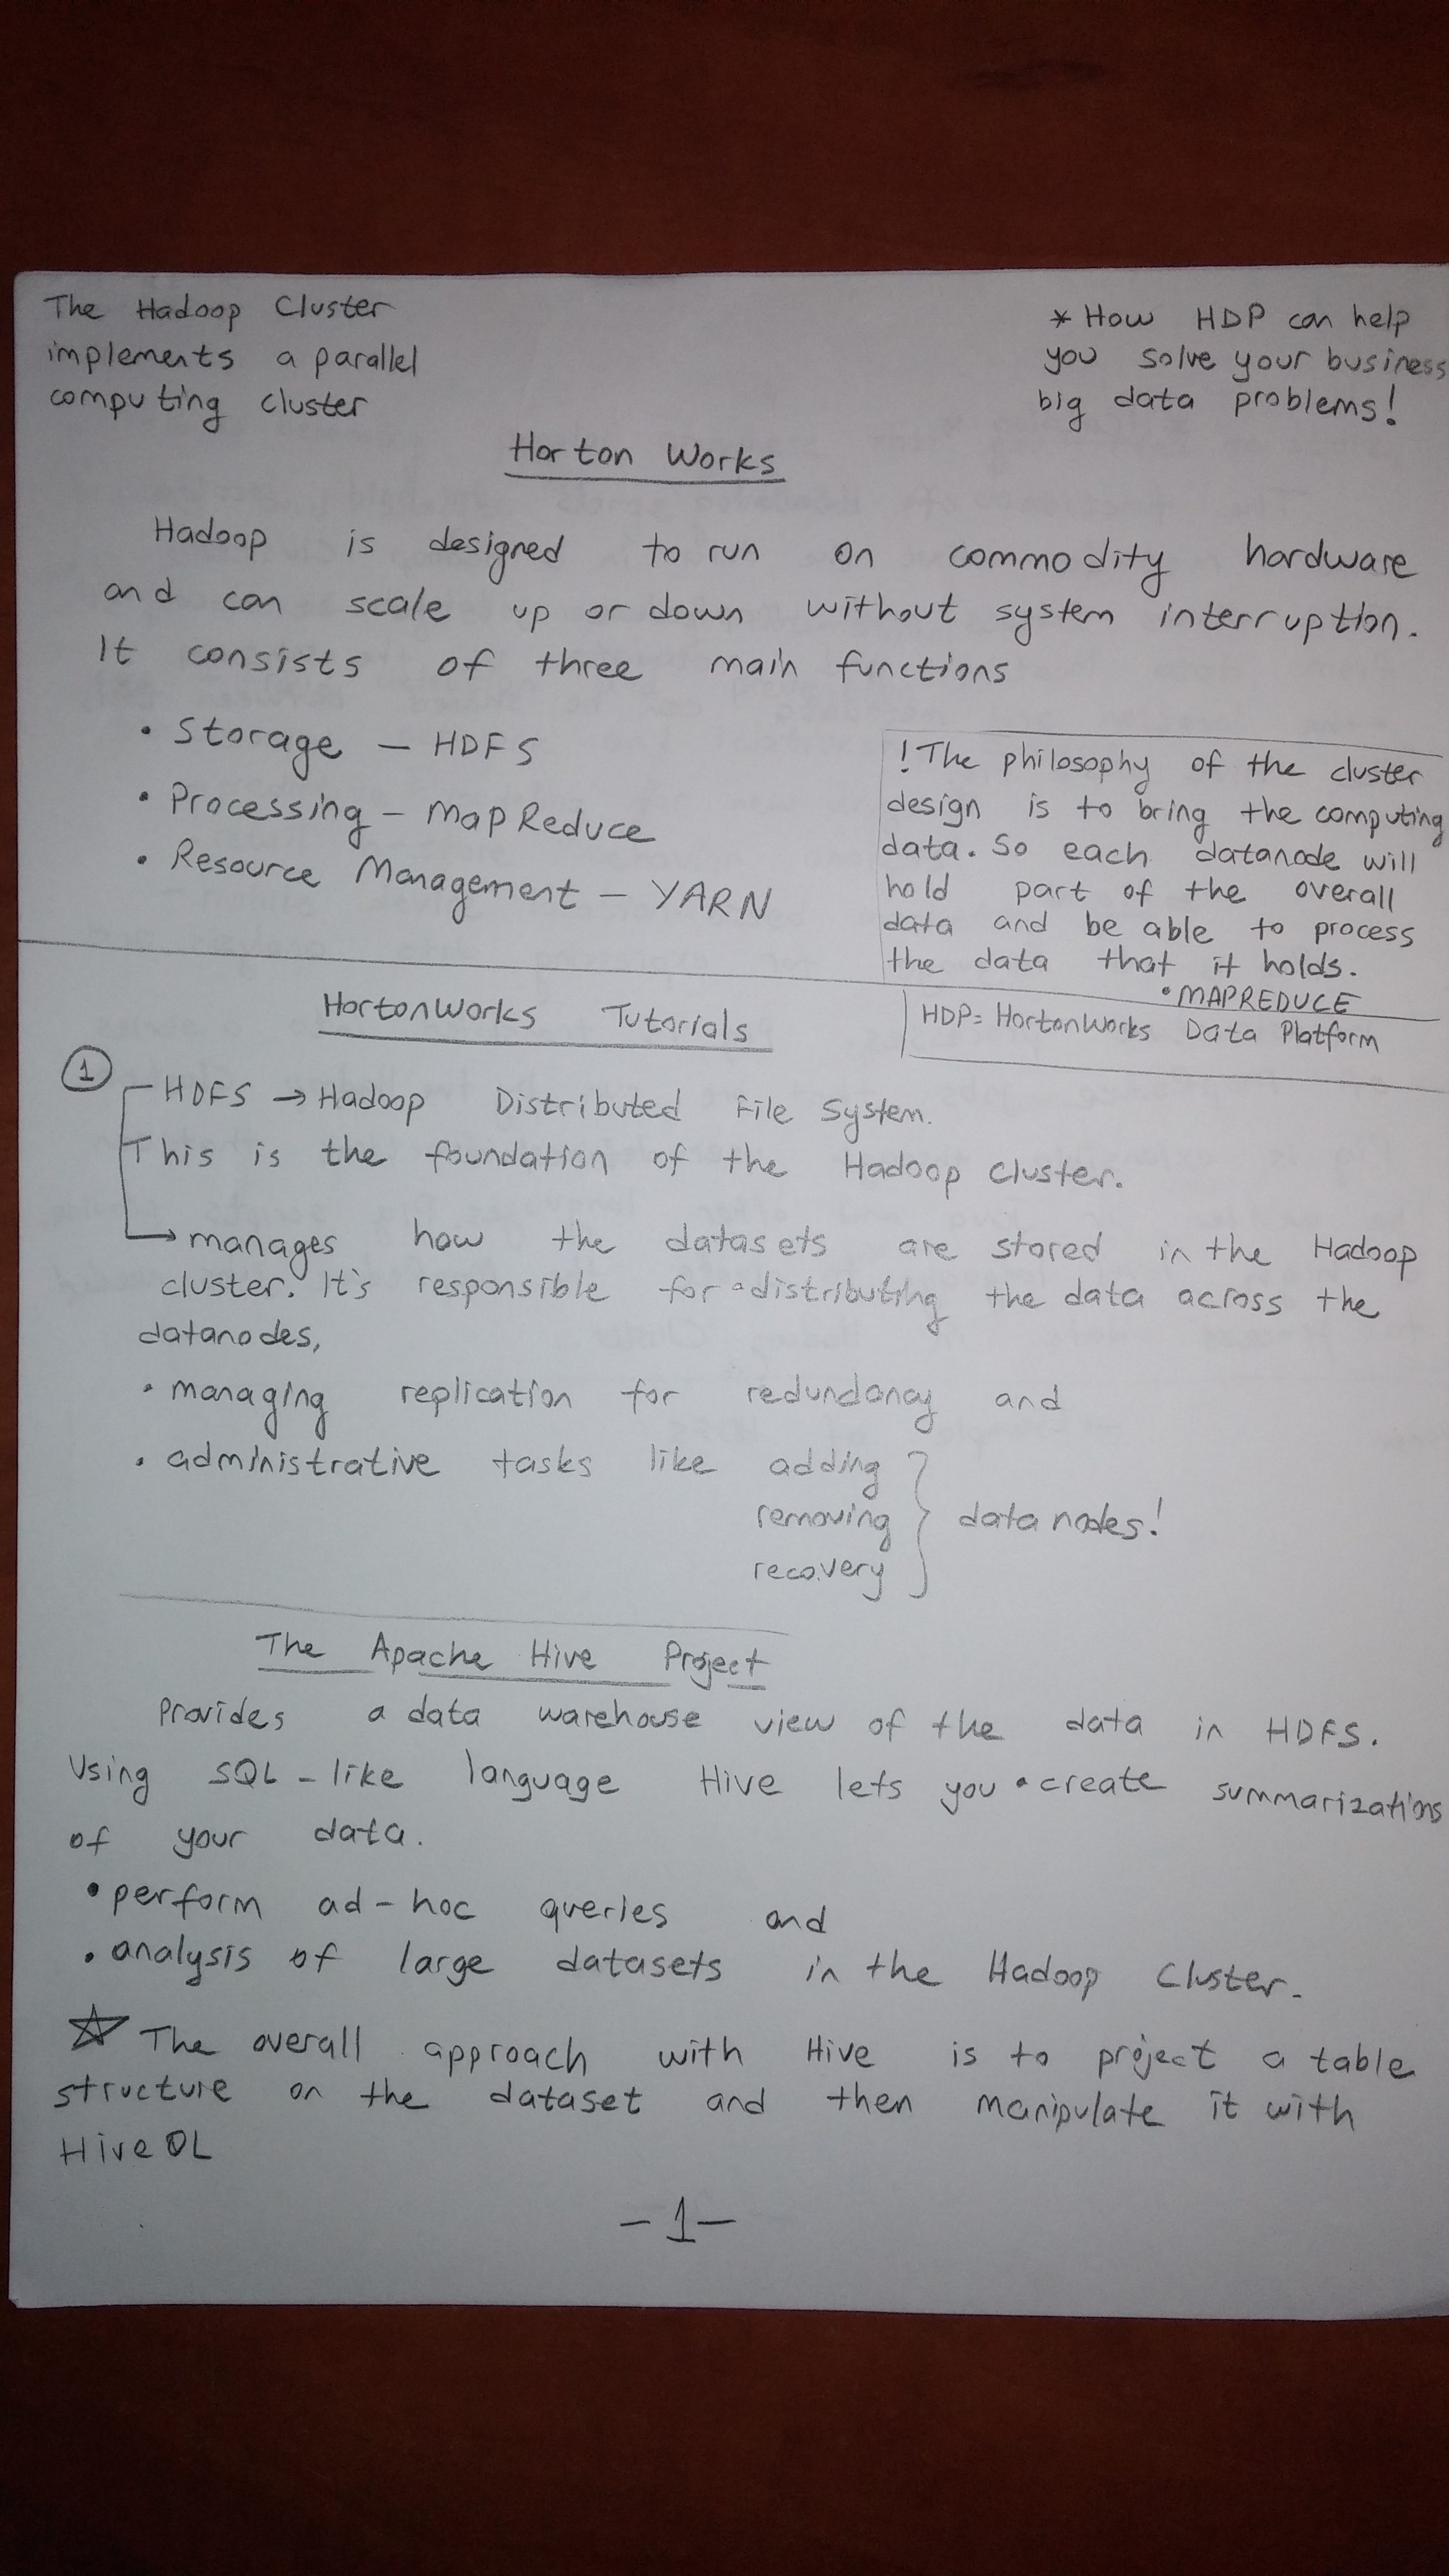 The Hadoop Cluster
implements a parallel
computing cluster
* How HDP can help
you solve your business
big data problems!
Horton Works
Hadoop is designed to run on commodity hardware
and can scale up or down without system interruption.
It consists of three main functions
• Storage – HDFS
• Processing – MapReduce
• Resource Management – YARN
! The philosophy of the cluster
design is to bring the computing
data. So each datanode will
hold part of the overall
data and be able to process
the data that it holds.
• MAPREDUCE
HortonWorks Tutorials
HDP = HortonWorks Data Platform
1
HDFS → Hadoop Distributed File System.
This is the foundation of the Hadoop Cluster.
→ manages how the datasets are stored in the Hadoop
cluster. It's responsible for • distributing the data across the
datanodes,
• managing replication for redundancy and
• administrative tasks like adding
removing } data nodes!
recovery
The Apache Hive Project
Provides a data warehouse view of the data in HDFS.
Using SQL-like language Hive lets you • create summarizations
of your data.
• perform ad-hoc queries and
• analysis of large datasets in the Hadoop Cluster.
☆ The overall approach with Hive is to project a table
structure on the dataset and then manipulate it with
Hive
– 1 –